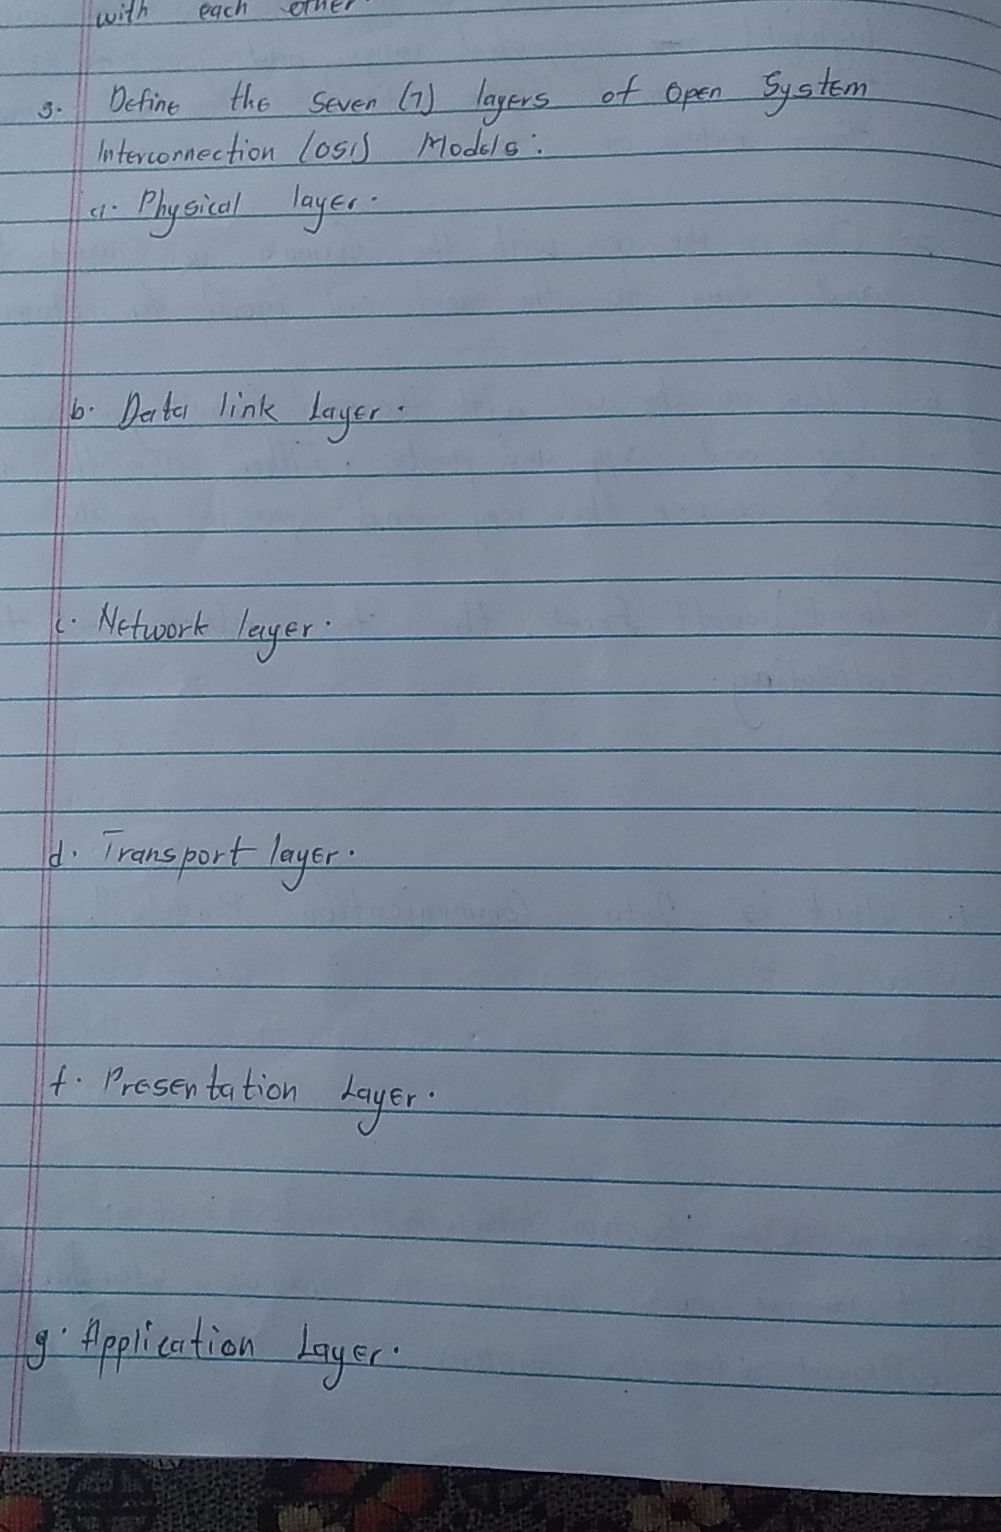 with each other.
3. Define the Seven (7) layers of Open System
Interconnection (OSI) Models:
a. Physical layer.
b. Data link Layer.
c. Network layer.
d. Transport layer.
f. Presentation Layer.
g. Application Layer.